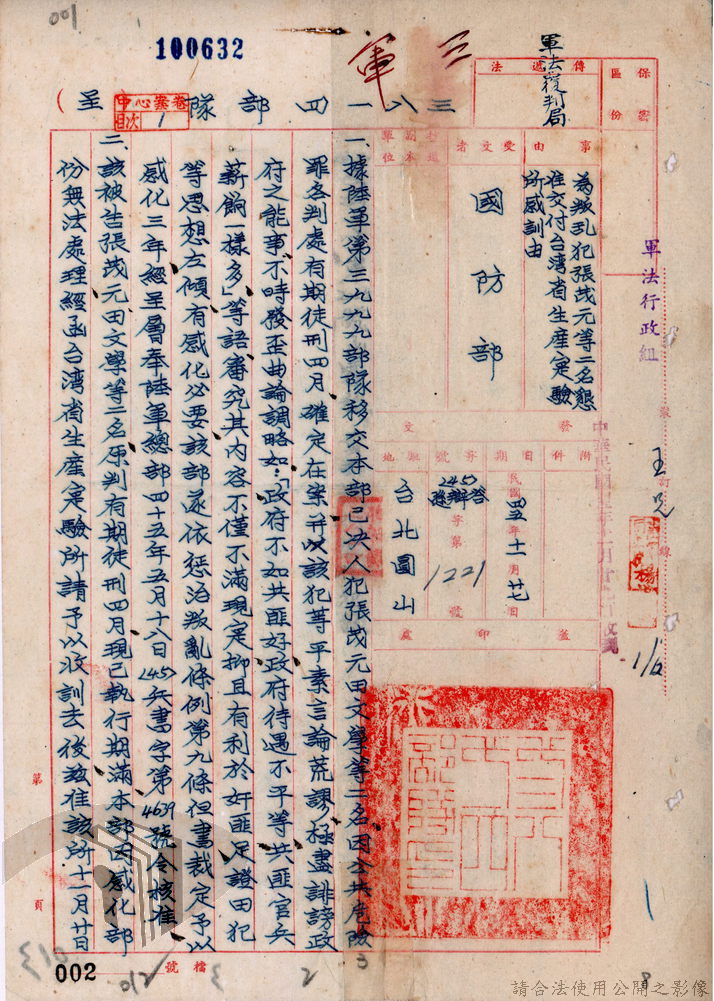 001
100632
三
軍
軍法覆判局
保密
區份
傳遞法
三八一四部隊(呈)
中心案卷
目次 1
事由
為叛亂犯張茂元等二名懇
准交付台湾省生產定驗
所感訓由
受文者
國防部
單位
軍法行政組
發文
附件
日期
民國45年十一月廿七日
字號
字第1221號
駐地
台北圓山
蓋印處
一、據陸軍第三九九九部隊移交本部已決人犯張茂元田文學等二名因公共危險
罪各判處有期徒刑四月確定在案并以該犯等平素言論荒謬極盡誹謗政
府之能事不時發歪曲論調略如:「政府不如共匪好政府待遇不平等共匪官兵
薪餉一樣多」等語審究其內容不僅不滿現定抑且有利於奸匪足證田犯
等思想左傾有感化必要該部遂依懲治叛亂條例第九條但書裁定予以
感化三年經呈層奉陸軍總部四十五年五月十八日(45)兵書字第4639號令核准
二、該被告張茂元田文學等二名原判有期徒刑四月現已執行期滿本部因感化部
份無法處理經函台湾省生產定驗所請予以收訓去後茲准該所十一月廿日
第 頁
檔號
002
請合法使用公開之影像